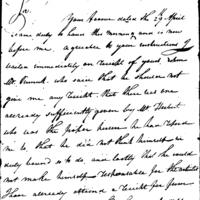 Sir,
Your Favour dated the 29 April
came duly to hand this morning and is now
before me, agreable to your instructions I
waited immediately on receipt of yours, when
Mr. who said that he should not
give me any receipt, that there was one
allready sufficiently given by Mr
who was the proper person he has refered
me to, that he did not think himself in
duty bound so to do, and lastly that he could
not make himself responsable for the
I have allready attained a receipt for from